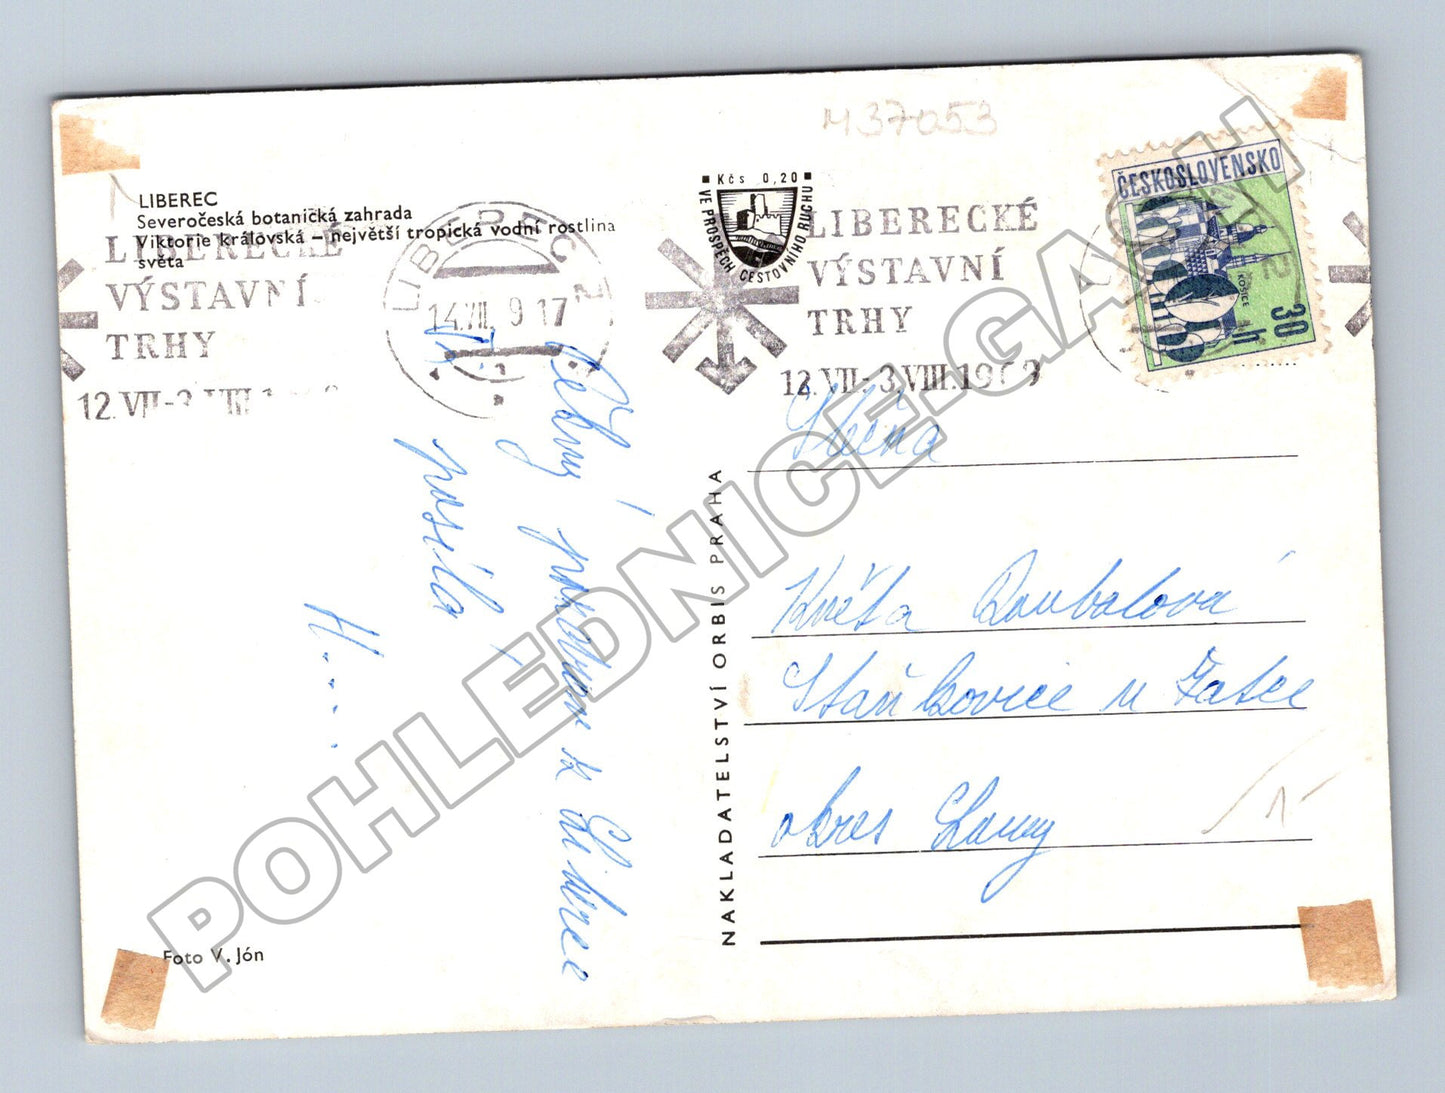 M37053
LIBEREC
Severočeská botanická zahrada
Viktorie královská – největší tropická vodní rostlina
světa
LIBERECKÉ
VÝSTAVNÍ
TRHY
12.VII-3.VIII.1
LIBEREC 2
14.VII. 9 17
Kčs 0,20
VE PROSPĚCH CESTOVNÍHO RUCHU
LIBERECKÉ
VÝSTAVNÍ
TRHY
12.VII-3.VIII.1969
ČESKOSLOVENSKO
KOŠICE
30 h
pozdrav z Liberce
posílá
H.....
Slečna
Květa Doubalová
Staňkovice u Žatce
okres Louny
NAKLADATELSTVÍ ORBIS PRAHA
Foto V. Jón
POHLEDNICE-GASH